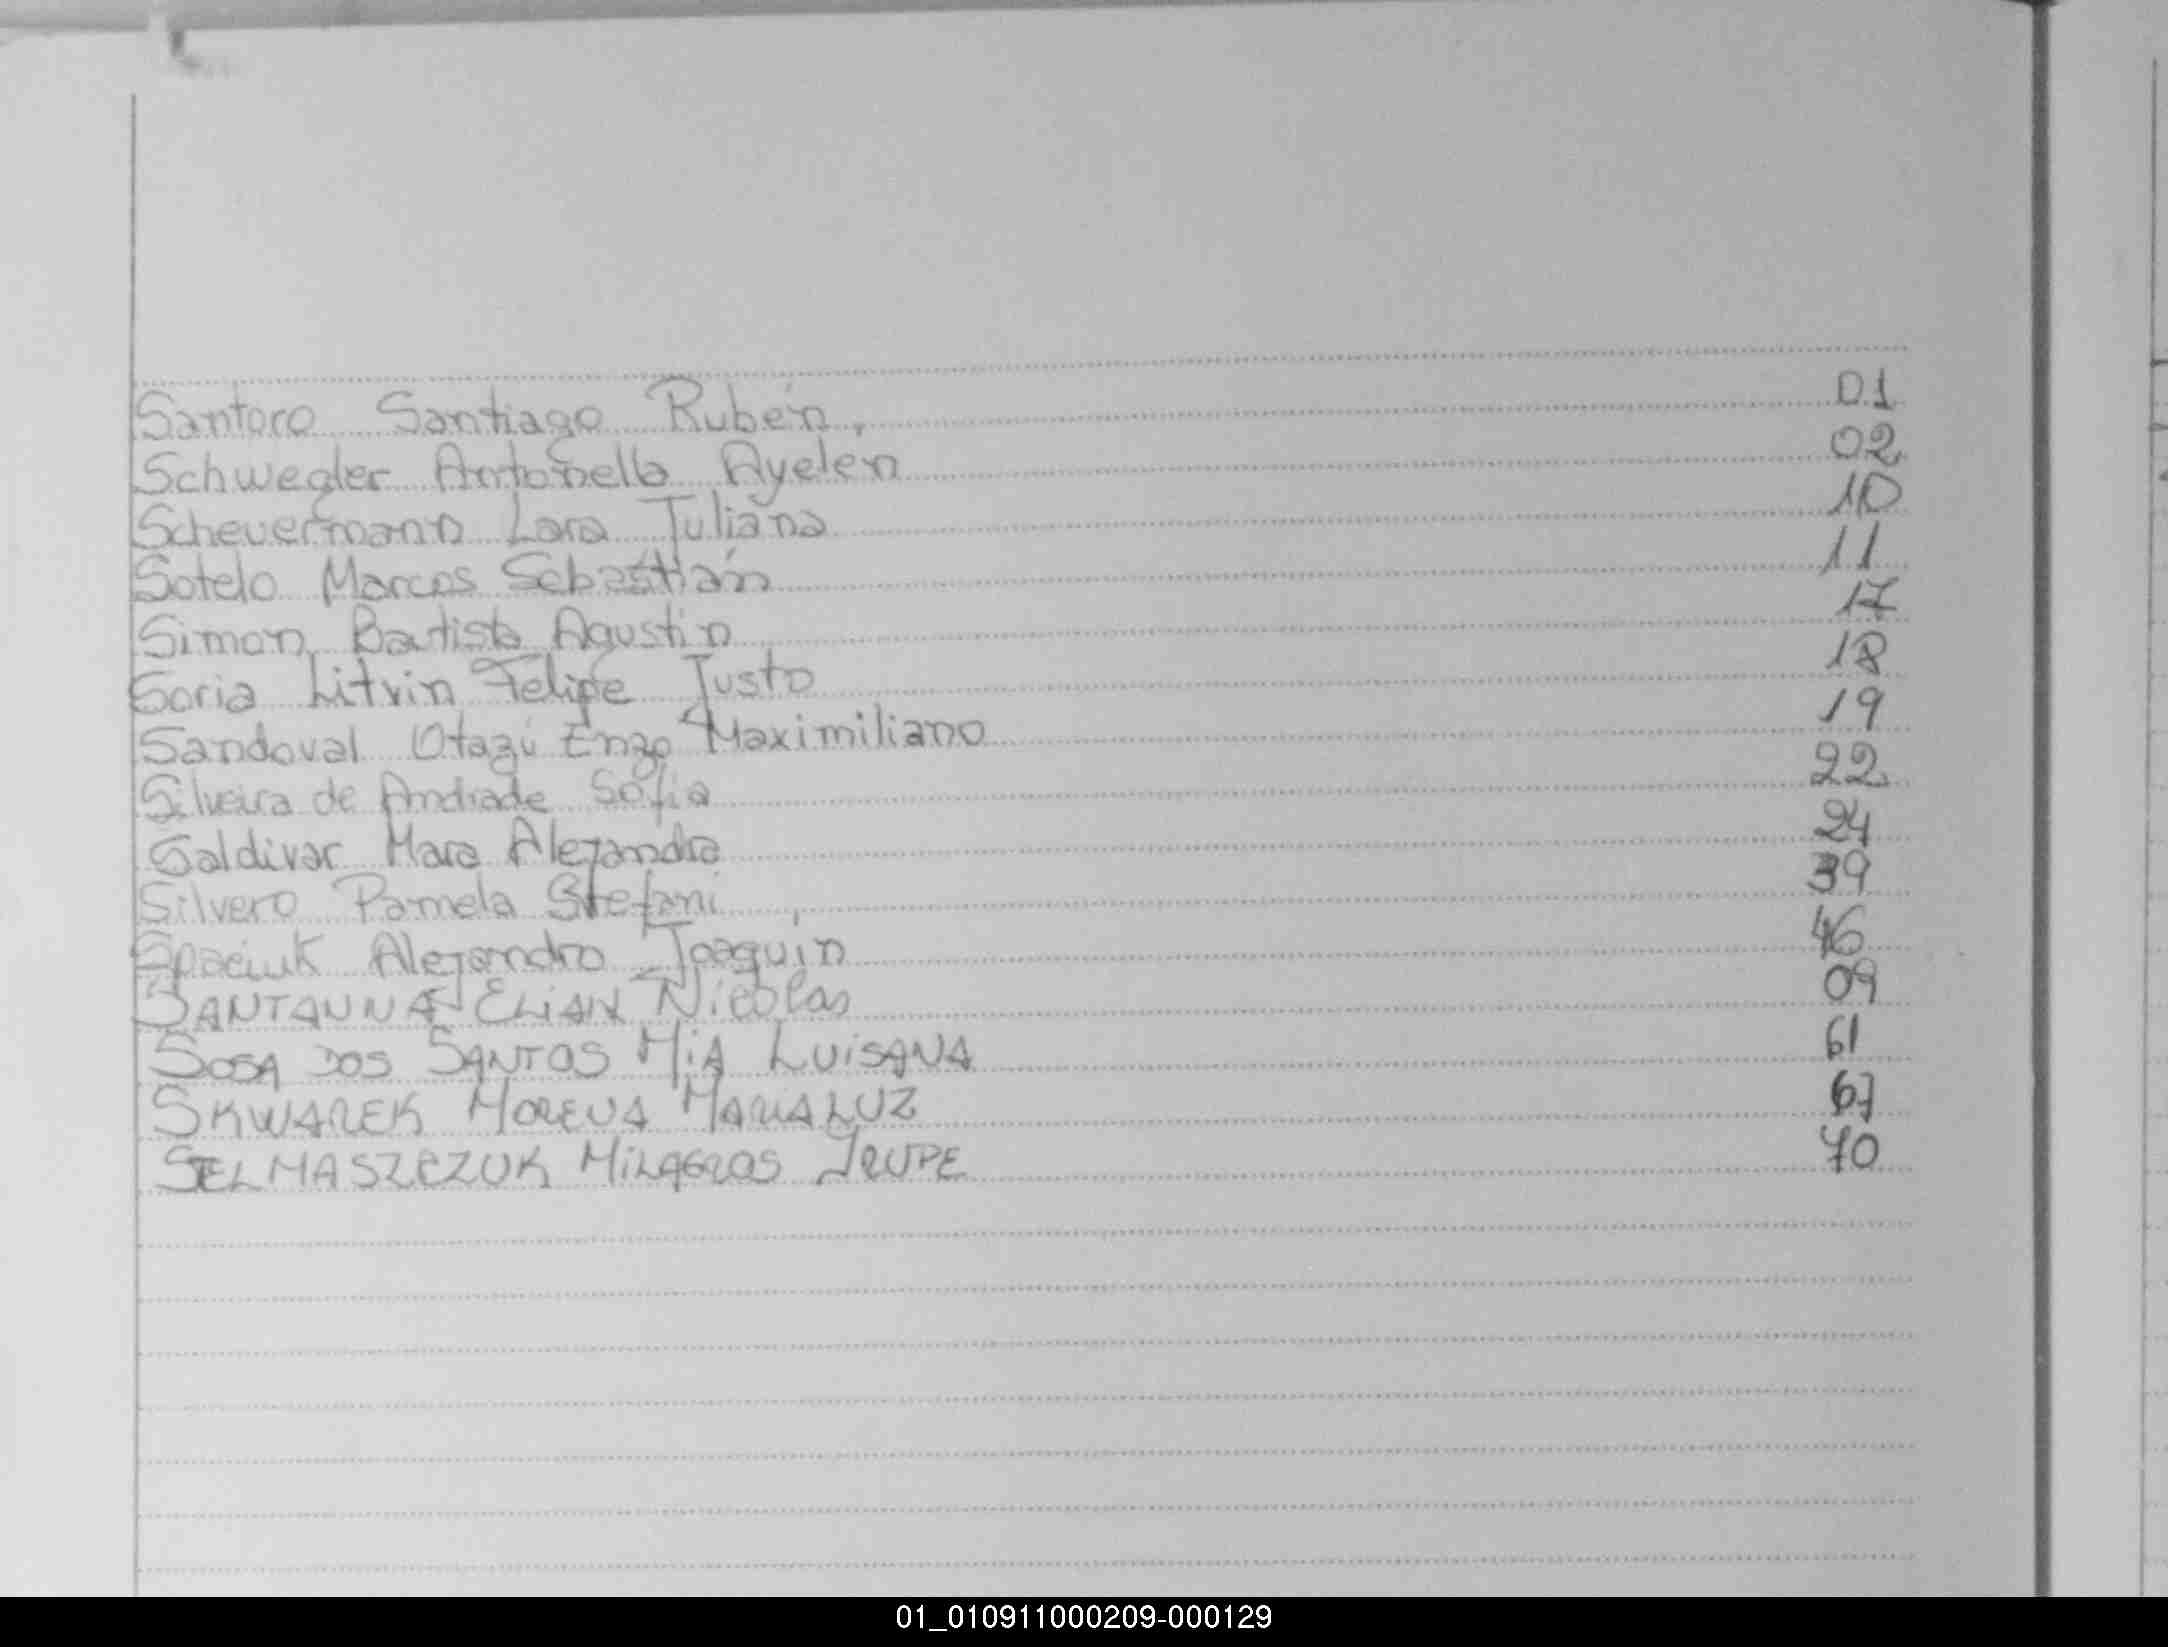 Santoro Santiago Rubén, 01
Schwegler Antonella Ayelen 02
Scheuermann Lara Juliana 10
Sotelo Marcos Sebastián 11
Simon Bautista Agustín 17
Soria Litvin Felipe Justo 18
Sandoval Otazú Enzo Maximiliano 19
Silveira de Andrade Sofia 22
Saldivar Mara Alejandra 24
Silvero Pamela Stefani 39
Spaciuk Alejandro Joaquín 46
SANTANNA ELIAN Nicolas 09
SOSA DOS SANTOS MiA LUiSANA 61
SKWAREK MORENA MARIA LUZ 67
SELMASZCZUK MiLAGROS IRUPE 70
01_010911000209-000129